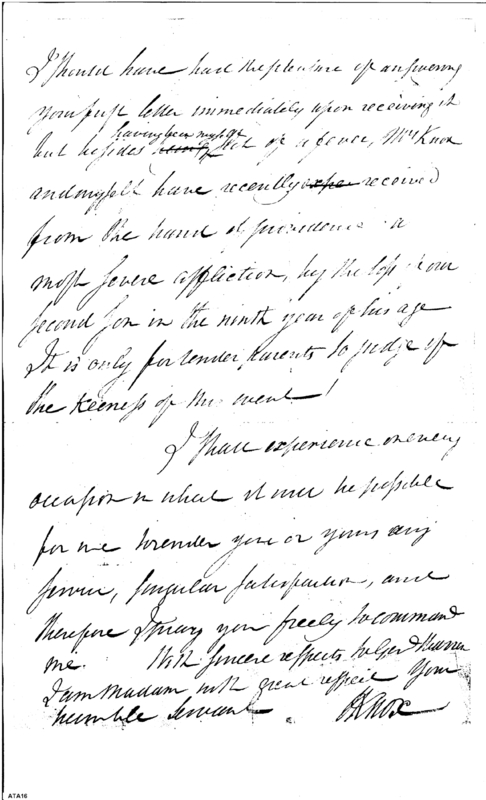 I should have had the pleasure of answering
your first letter immediately upon receiving it
having been myself
but besides sick of a fever, Mrs Knox
and myself have recently expe received
from the hand of providence a
most severe affliction, by the loss of our
second son in the ninth year of his age
It is only for tender parents to judge of
the keeness of this event!
I shall experience on every
occasion in which it may be possible
for me to render you or yours any
service, singular satisfaction, and
therefore I pray you freely to command
me. With sincere respects to Genl Warren
I am Madam with great respect Your
humble Servant HKnox
ATA16